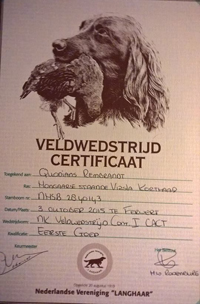 VELDWEDSTRIJD
CERTIFICAAT
Toegekend aan Quodians Reinbrandt
Hongaarse staande Vizsla Korthaar
Stamboom nr NHSB 2840143
Datum/Plaats 3 oktober 2015 te Ferwert
Wedstrijdvorm NK Veldwedstrijd Cont. I CACT
Kwalificatie Eerste Goed
Keurmeester
Nederlandse Vereniging "LANGHAAR"